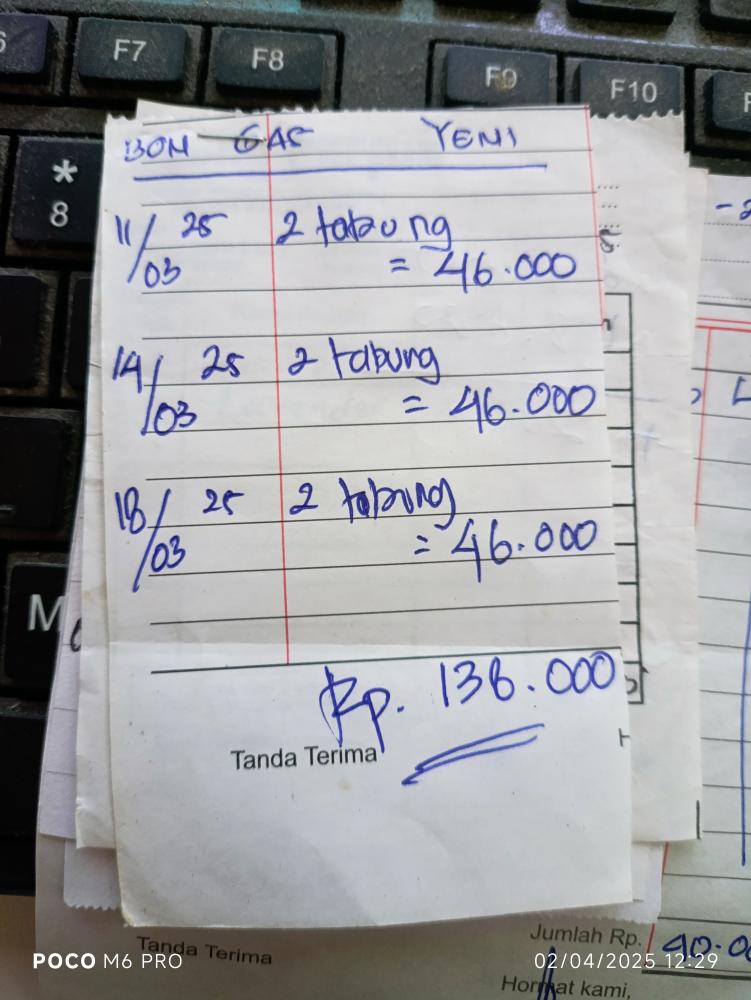 F7 F8 F9 F10
*
8
BON GAS YENI
11/03 25 2 tabung
= 46.000
14/03 25 2 tabung
= 46.000
18/03 25 2 tabung
= 46.000
M
Rp. 138.000
Tanda Terima
Tanda Terima
Jumlah Rp. 40.0
Hormat kami,
POCO M6 PRO
02/04/2025 12:29